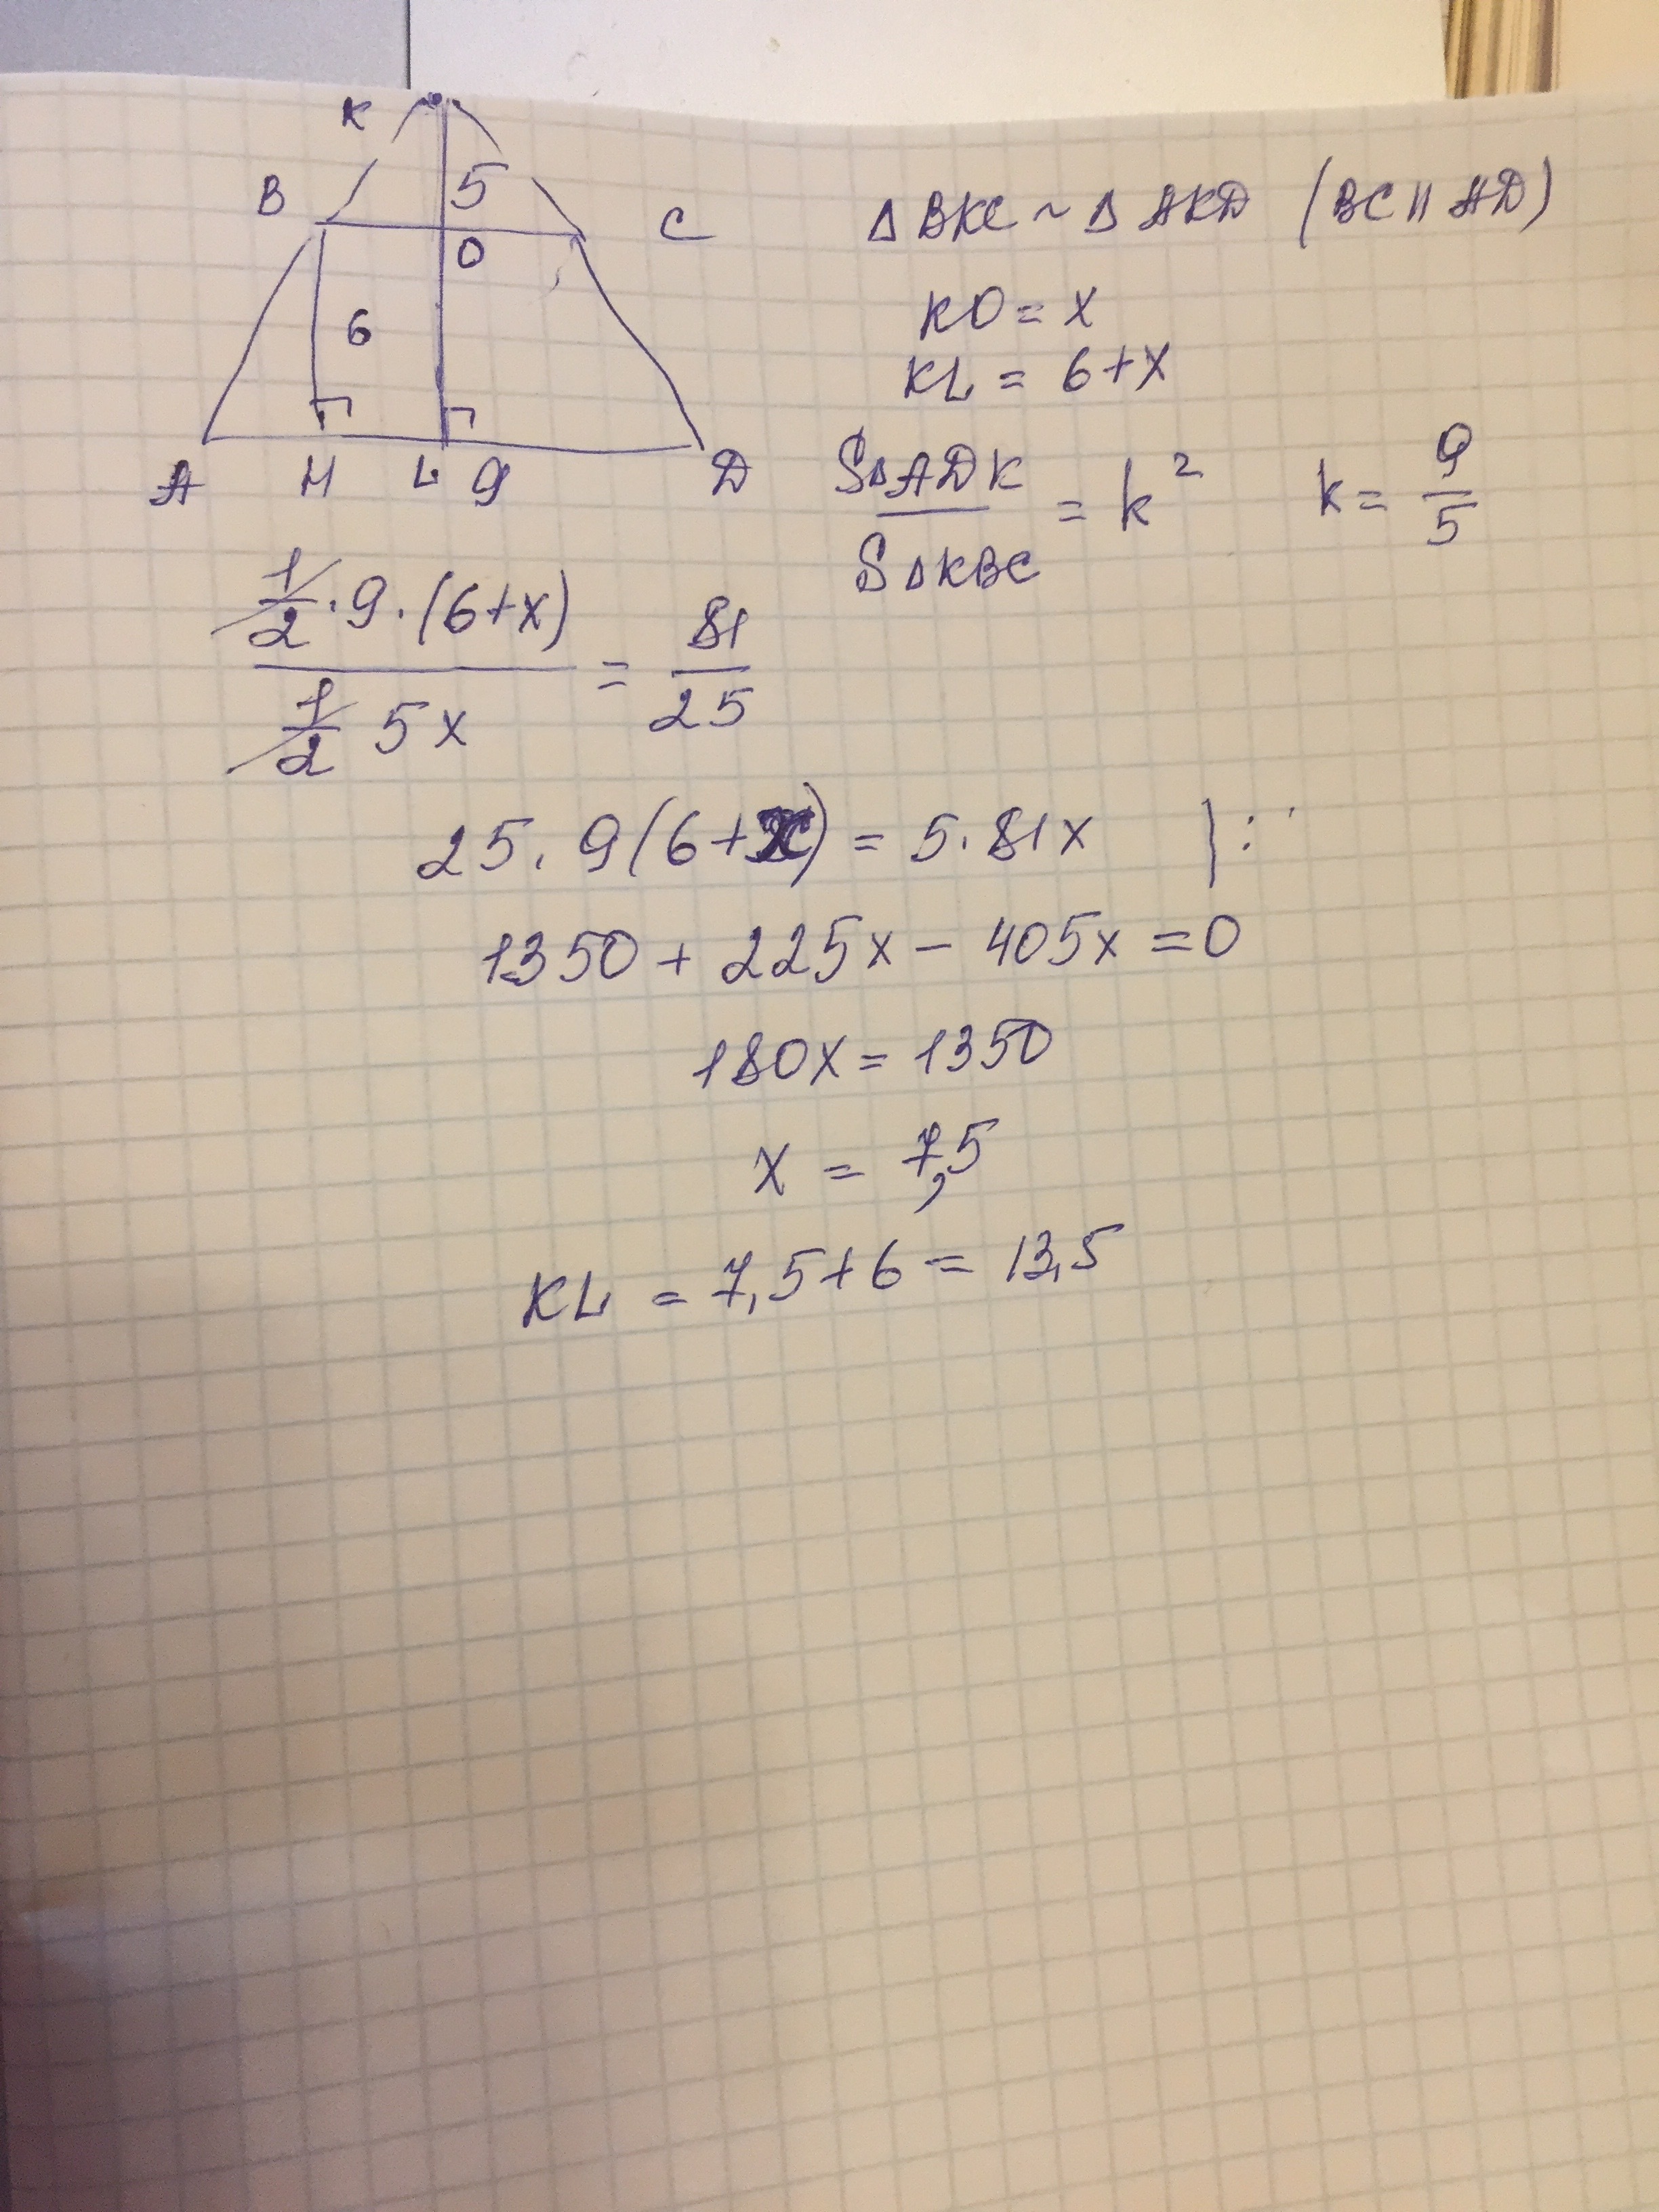 K
B 5 C
O
6
A H L 9 D
Δ BKC ~ Δ AKD (BC || AD)
KO = x
KL = 6+x
SΔADK / SΔKBC = k² k = 9/5
1/2 · 9 · (6+x) / 1/2 5x = 81/25
25 · 9(6+x) = 5 · 81x | :
1350 + 225x − 405x = 0
180x = 1350
x = 7,5
KL = 7,5+6 = 13,5